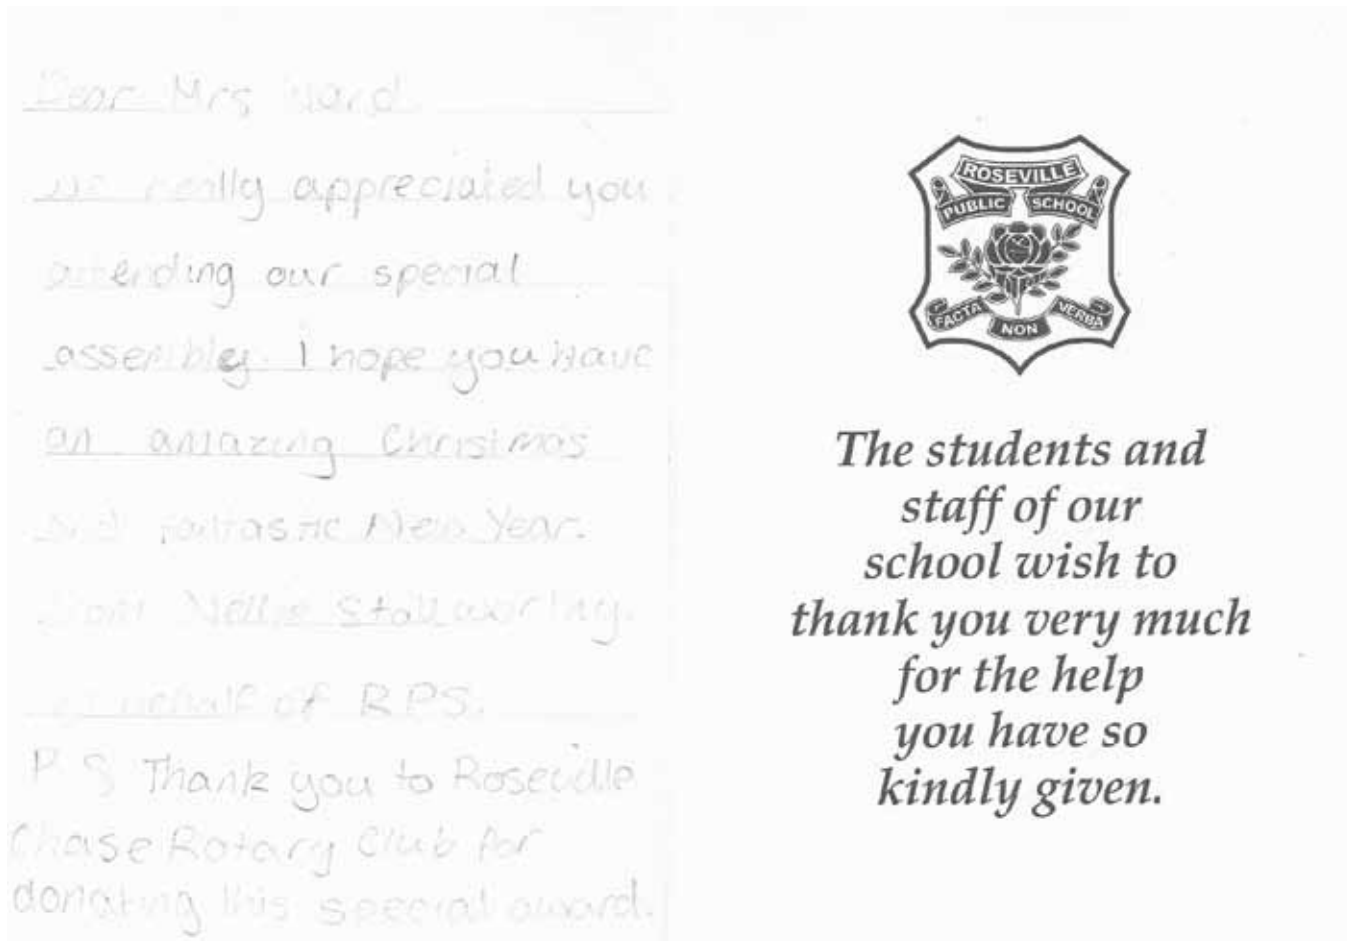 Dear Mrs Ward
We really appreciated you
attending our special
assembly. I hope you have
an amazing Christmas
and fantastic New Year.
from Nellie
on behalf of RPS.
P.S Thank you to Roseville
Chase Rotary Club for
donating this special award.
ROSEVILLE
PUBLIC SCHOOL
FACTA NON VERBA
The students and
staff of our
school wish to
thank you very much
for the help
you have so
kindly given.